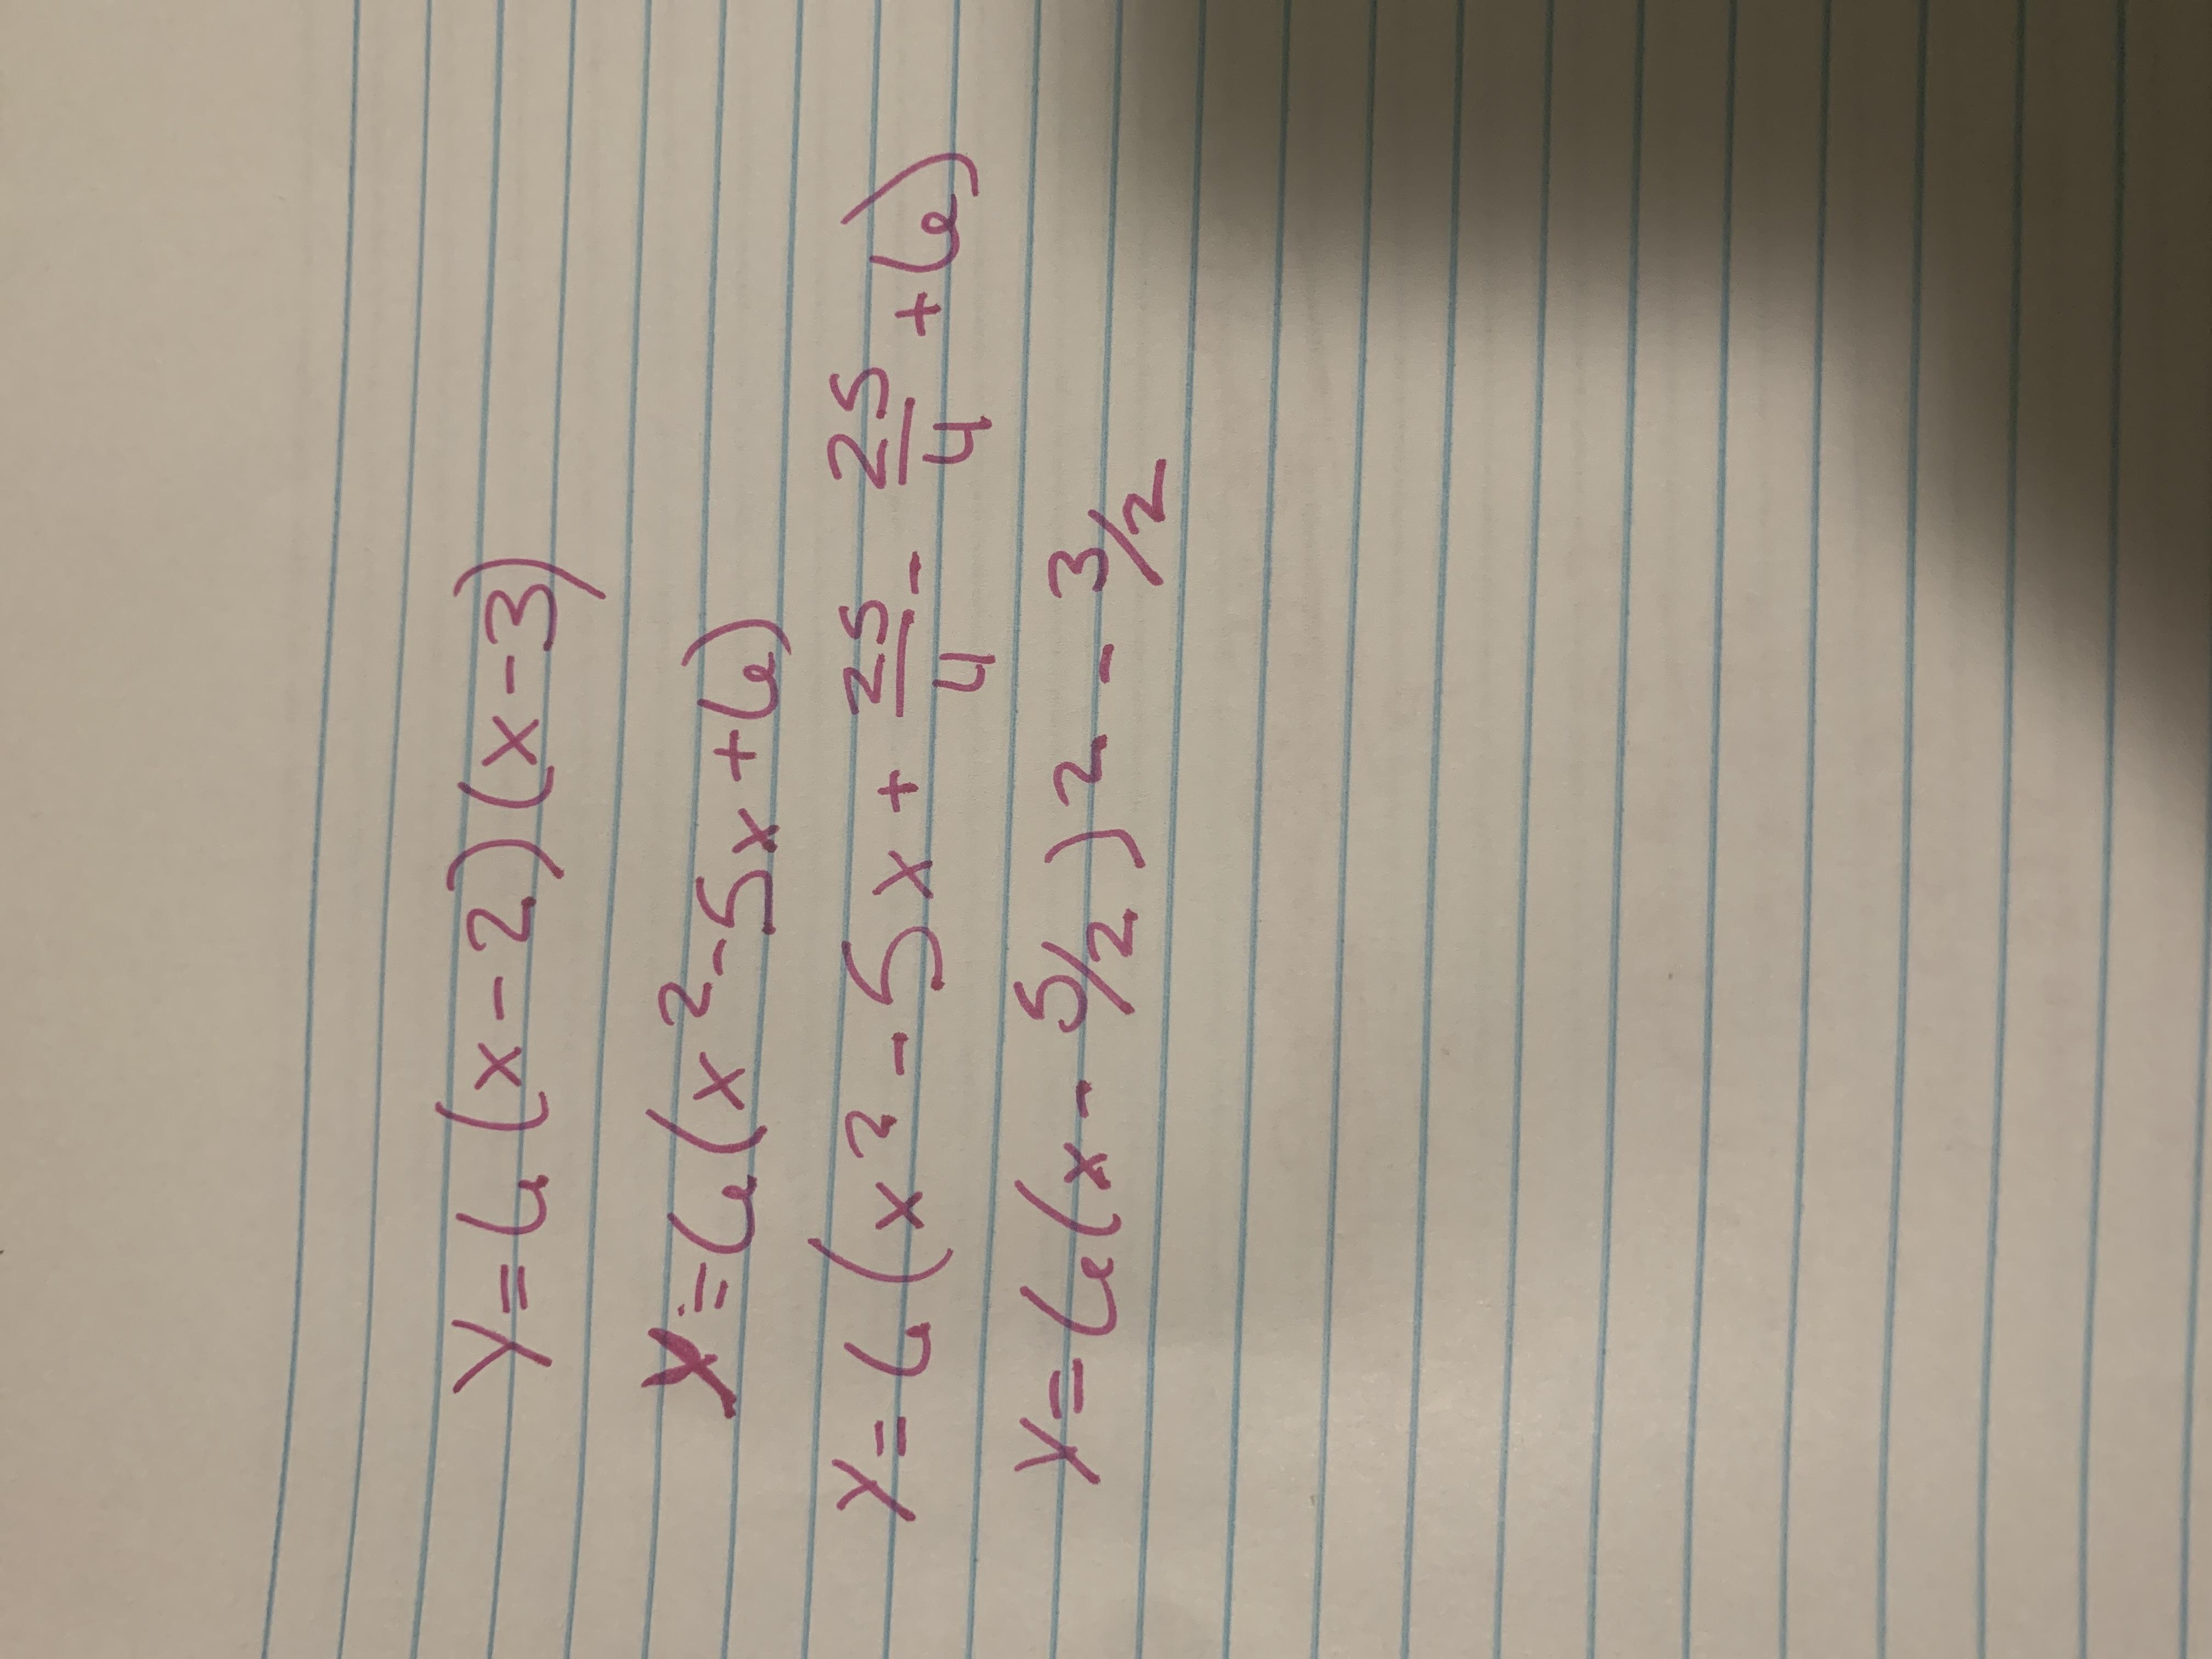 y = 6(x-2)(x-3)
y = 6(x² - 5x + 6)
y = 6(x² - 5x + 25/4 - 25/4 + 6)
y = 6(x - 5/2)2 - 3/2